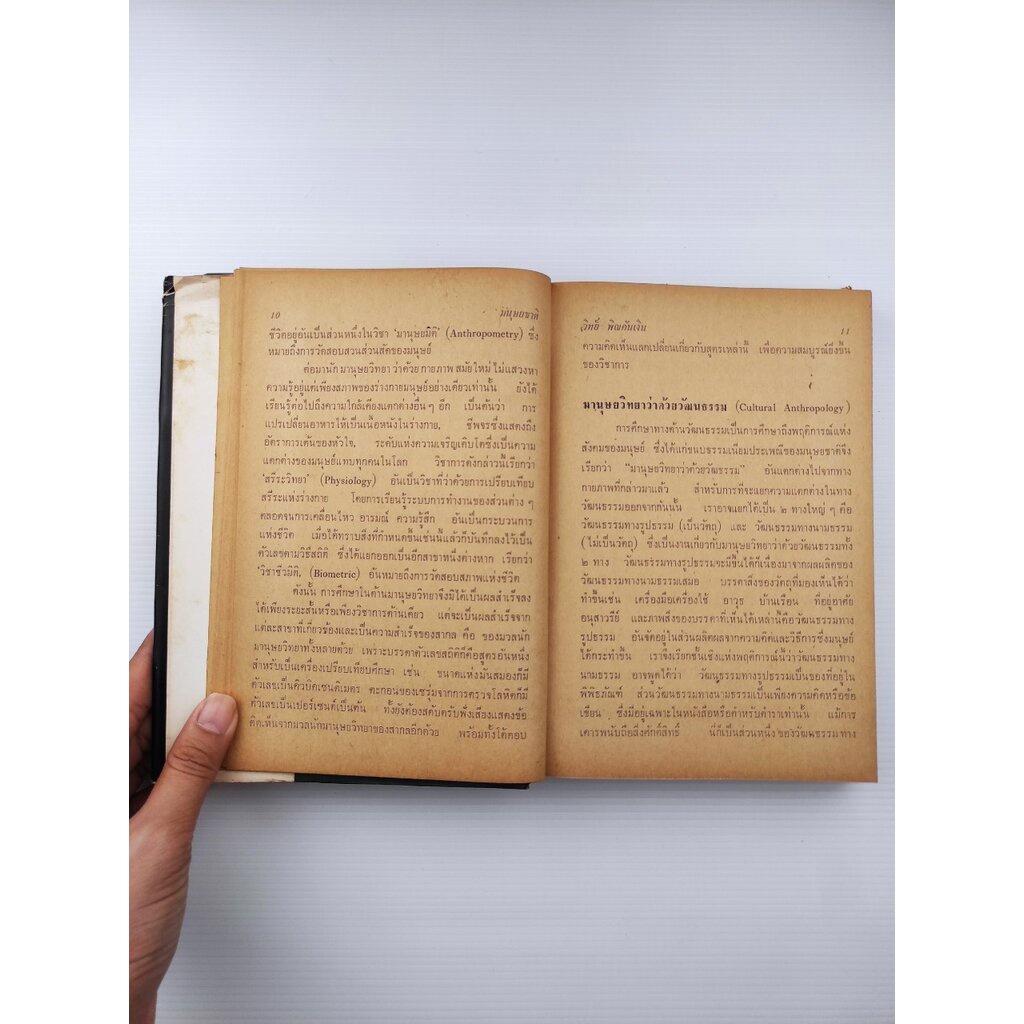 10 มนุษยชาติ
ชีวิตอยู่อันเป็นส่วนหนึ่งในวิชา 'มานุษยมิติ' (Anthropometry) ซึ่ง
หมายถึงการวัดสอบสวนส่วนสัดของมนุษย์
ต่อมานักมานุษยวิทยาว่าด้วยกายภาพ สมัยใหม่ ไม่แสวงหา
ความรู้อยู่แต่เพียงสภาพของร่างกายมนุษย์อย่างเดียวเท่านั้น ยังได้
เรียนรู้ต่อไปถึงความใกล้เคียงแตกต่างอื่น ๆ อีก เป็นต้นว่า การ
แปรเปลี่ยนอาหารให้เป็นเนื้อหนังในร่างกาย, ชีพจรซึ่งแสดงถึง
อัตราการเต้นของหัวใจ, ระดับแห่งความเจริญเติบโตซึ่งเป็นความ
แตกต่างของมนุษย์แทบทุกคนในโลก วิชาการดังกล่าวนี้เรียกว่า
'สรีระวิทยา' (Physiology) อันเป็นวิชาที่ว่าด้วยการเปรียบเทียบ
สรีระแห่งร่างกาย โดยการเรียนรู้ระบบการทำงานของส่วนต่าง ๆ
ตลอดจนการเคลื่อนไหว อารมณ์ ความรู้สึก อันเป็นกระบวนการ
แห่งชีวิต เมื่อได้ทราบสิ่งที่กำหนดขึ้นเช่นนี้แล้วก็บันทึกลงไว้เป็น
ตัวเลขตามวิธีสถิติ ซึ่งได้แยกออกเป็นอีกสาขาหนึ่งต่างหาก เรียกว่า
'วิชาชีวมิติ, (Biometric) อันหมายถึงการวัดสอบสภาพแห่งชีวิต
ดังนั้น การศึกษาในด้านมานุษยวิทยาจึงมิได้เป็นผลสำเร็จลง
ได้เพียงระยะสั้นหรือเพียงวิชาการด้านเดียว แต่จะเป็นผลสำเร็จจาก
แต่ละสาขาที่เกี่ยวข้องและเป็นความสำเร็จของสากล คือ ของมวลนัก
มานุษยวิทยาทั้งหลายด้วย เพราะบรรดาตัวเลขสถิติก็คือสูตรอันหนึ่ง
สำหรับเป็นเครื่องเปรียบเทียบศึกษา เช่น ขนาดแห่งมันสมองก็มี
ตัวเลขเป็นคิวบิคเซนติเมตร ตะกอนของเซรุ่มจากการตรวจโลหิตก็มี
ตัวเลขเป็นเปอร์เซนต์เป็นต้น ทั้งยังต้องสดับตรับฟังเสียงแสดงข้อ
คิดเห็นจากมวลนักมานุษยวิทยาของสากลอีกด้วย พร้อมทั้งโต้ตอบ
วิทย์ พิณคันเงิน 11
ความคิดเห็นแลกเปลี่ยนเกี่ยวกับสูตรเหล่านี้ เพื่อความสมบูรณ์ยิ่งขึ้น
ของวิชาการ
มานุษยวิทยาว่าด้วยวัฒนธรรม (Cultural Anthropology)
การศึกษาทางด้านวัฒนธรรมเป็นการศึกษาถึงพฤติการณ์แห่ง
สังคมของมนุษย์ ซึ่งได้แก่ขนบธรรมเนียมประเพณีของมนุษยชาติจึง
เรียกว่า "มานุษยวิทยาว่าด้วยวัฒนธรรม" อันแตกต่างไปจากทาง
กายภาพที่กล่าวมาแล้ว สำหรับการที่จะแยกความแตกต่างในทาง
วัฒนธรรมออกจากกันนั้น เราอาจแยกได้เป็น ๒ ทางใหญ่ ๆ คือ
วัฒนธรรมทางรูปธรรม (เป็นวัตถุ) และ วัฒนธรรมทางนามธรรม
(ไม่เป็นวัตถุ) ซึ่งเป็นงานเกี่ยวกับมานุษยวิทยาว่าด้วยวัฒนธรรมทั้ง
๒ ทาง วัฒนธรรมทางรูปธรรมจะมีขึ้นได้ก็เนื่องมาจากผลผลิตของ
วัฒนธรรมทางนามธรรมเสมอ บรรดาสิ่งของวัตถุที่มองเห็นได้ว่า
ทำขึ้นเช่น เครื่องมือเครื่องใช้ อาวุธ บ้านเรือน ที่อยู่อาศัย
อนุสาวรีย์ และภาพสิ่งของบรรดาที่เห็นได้เหล่านี้คือวัฒนธรรมทาง
รูปธรรม อันจัดอยู่ในส่วนผลิตผลจากความคิดและวิธีการซึ่งมนุษย์
ได้กระทำขึ้น เราจึงเรียกชั้นเชิงแห่งพฤติการณ์นี้ว่าวัฒนธรรมทาง
นามธรรม อาจพูดได้ว่า วัฒนธรรมทางรูปธรรมเป็นของที่อยู่ใน
พิพิธภัณฑ์ ส่วนวัฒนธรรมทางนามธรรมเป็นเพียงความคิดหรือข้อ
เขียน ซึ่งมีอยู่เฉพาะในหนังสือหรือตำหรับตำราเท่านั้น แม้การ
เคารพนับถือสิ่งศักดิ์สิทธิ์ นี่ก็เป็นส่วนหนึ่งของวัฒนธรรมทาง